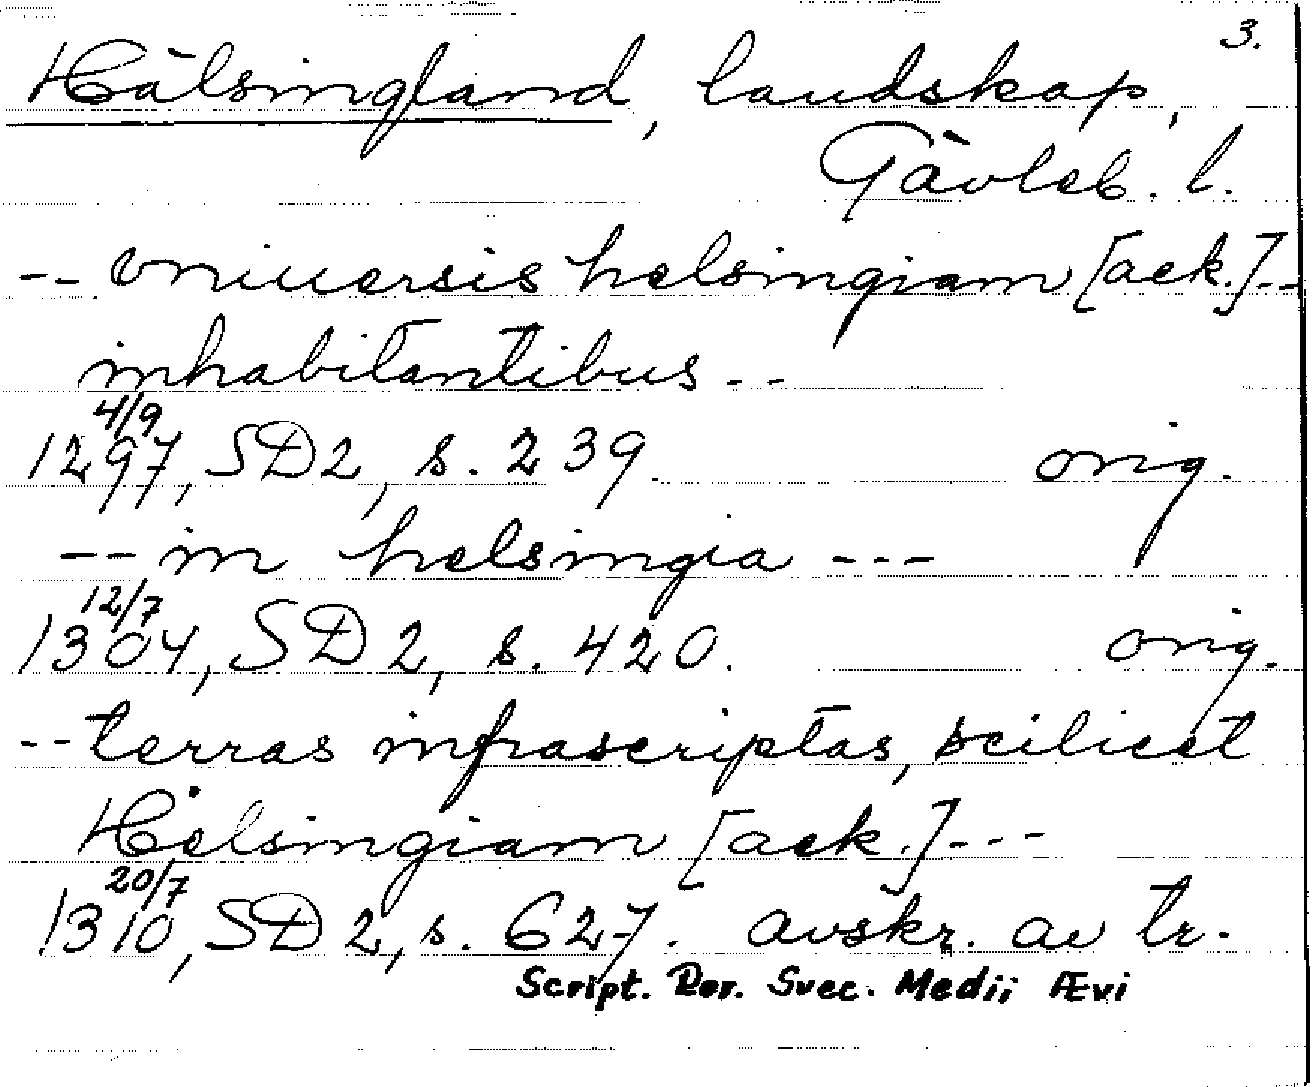 3.
Hälsingland, landskap,
Gävleb. l.
-- vniuersis helsingiam [ack.]--
inhabitantibus --
4/9
1297, SD 2, s. 239. orig.
-- in helsingia ---
12/7
1304, SD 2, s. 420. orig.
-- terras infrascriptas, scilicet
Helsingiam [ack.]---
20/7
1310, SD 2, s. 627. avskr. av tr.
Script. Rer. Svec. Medii Ævi